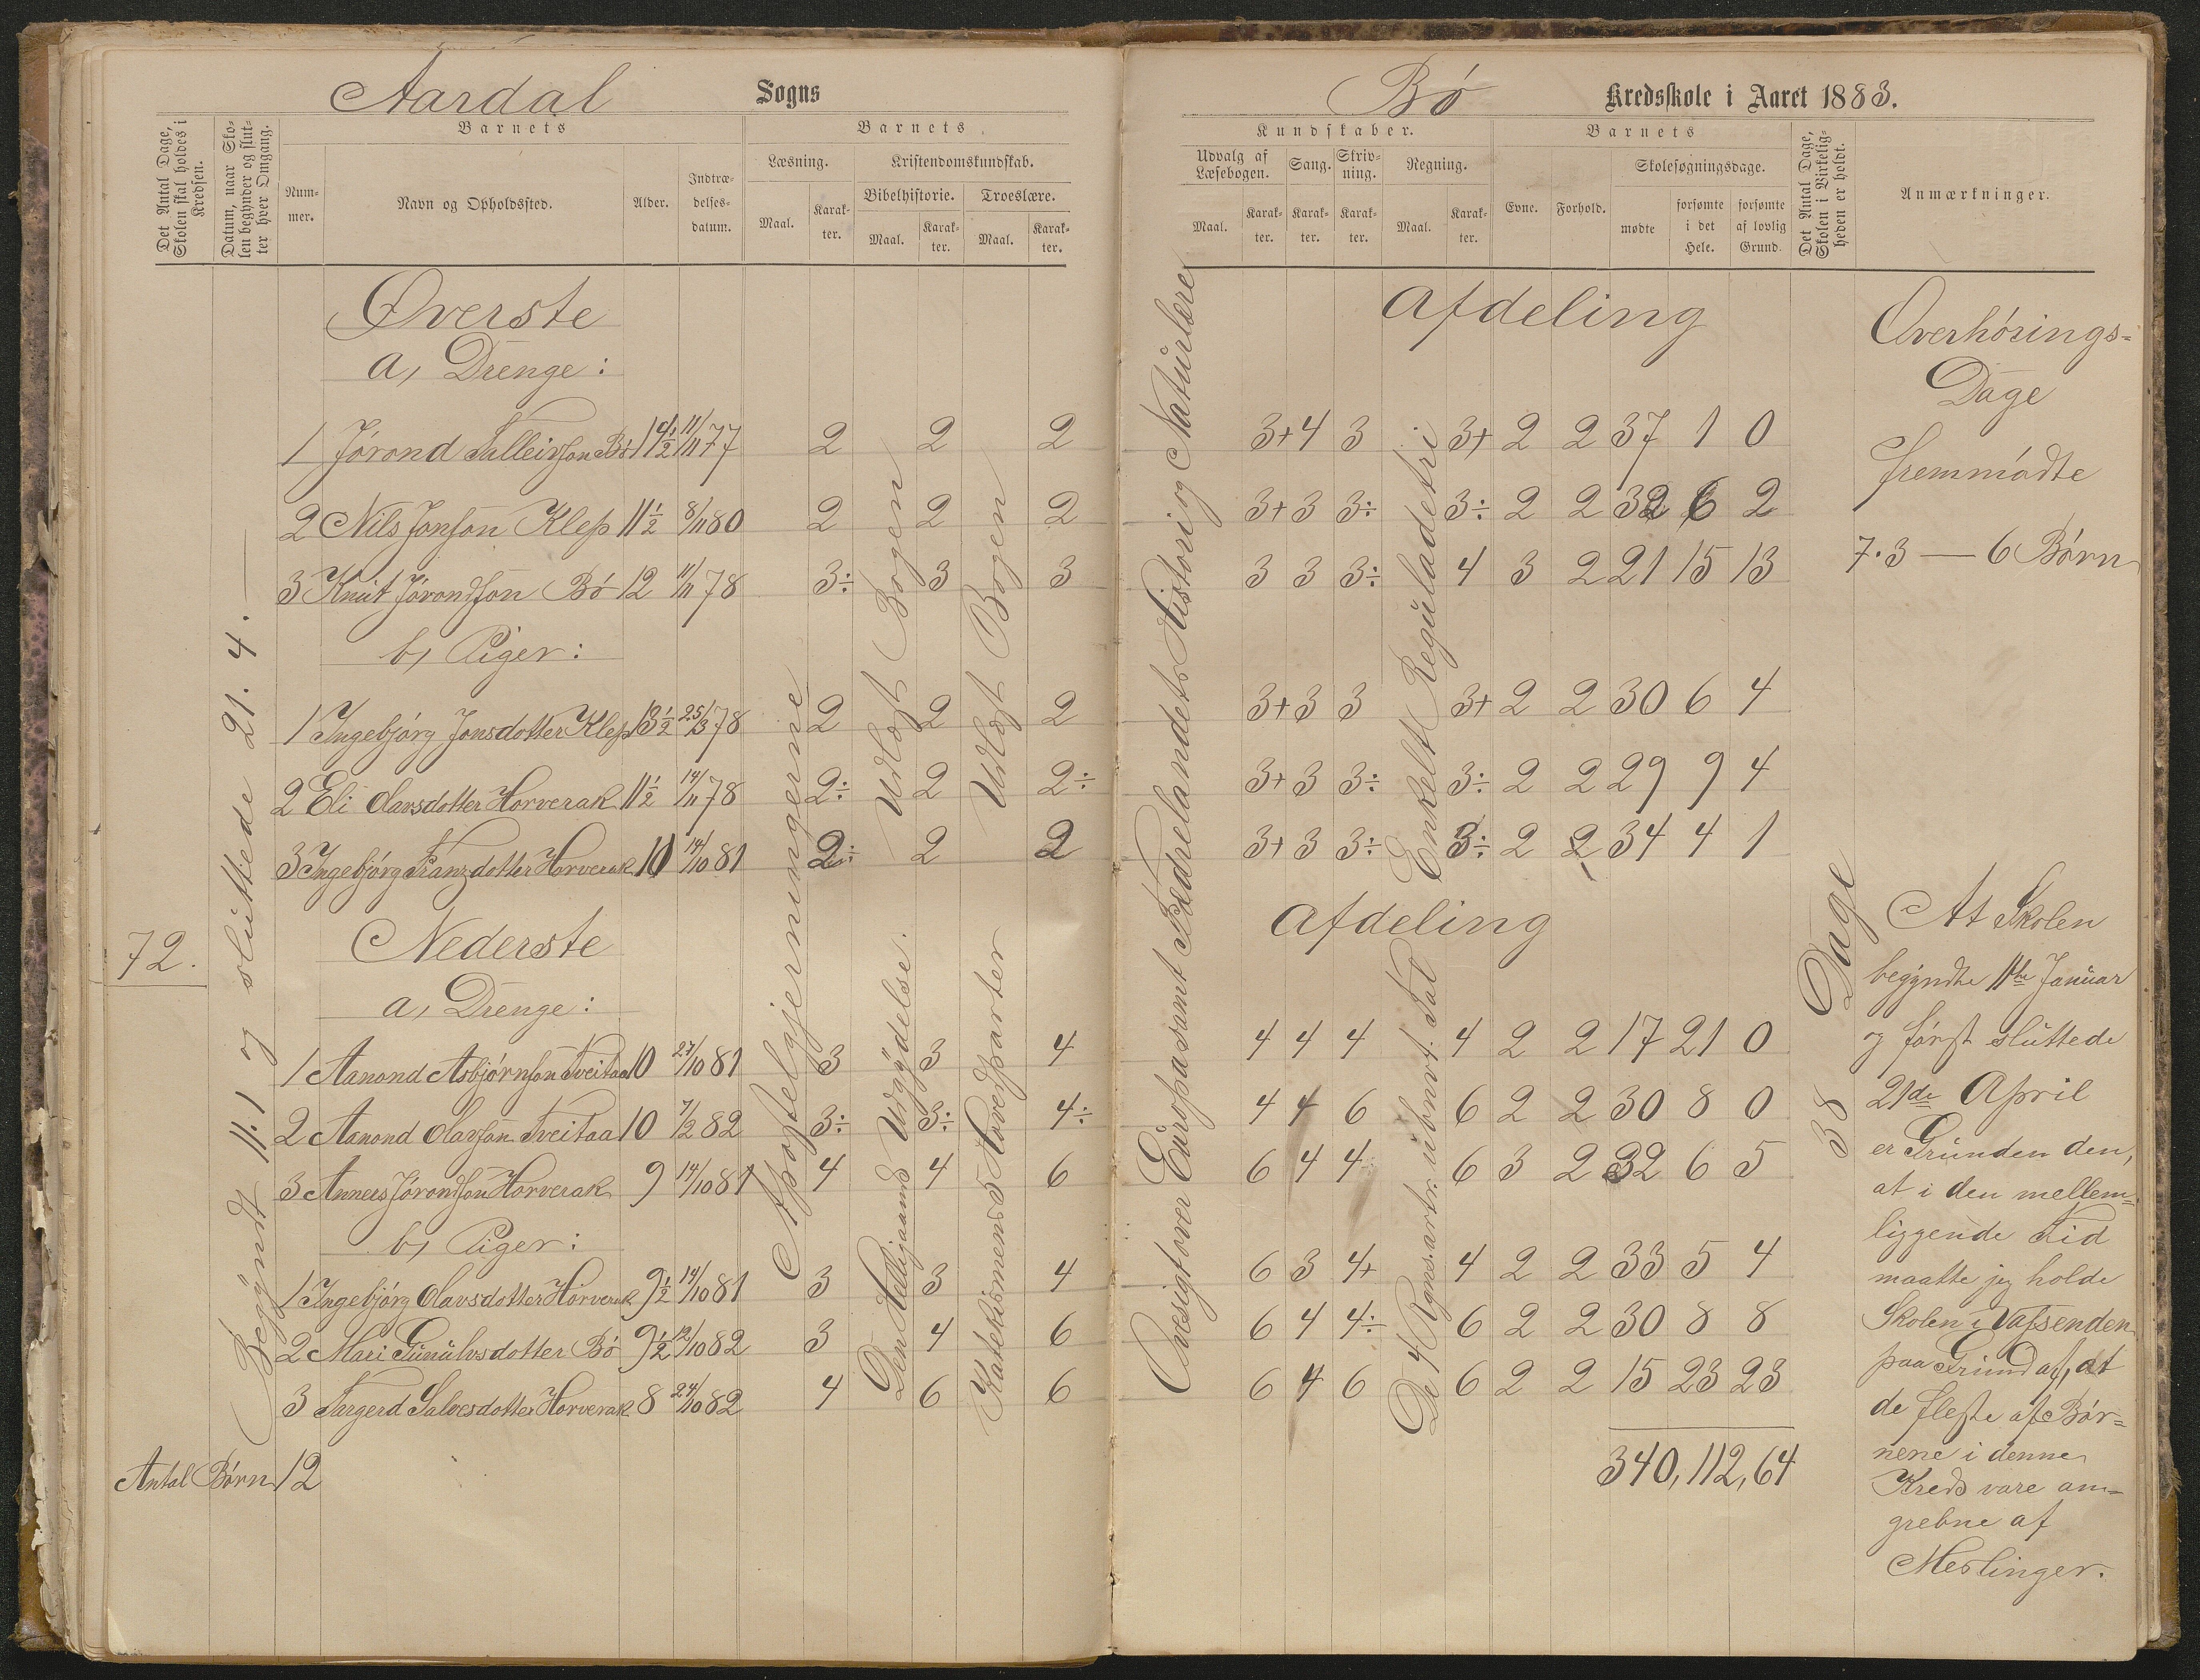 Aardal Sogns
Det Antal Dage, Skolen skal holdes i Kredsen.
Datum, naar Skolen begynder og slutter hver Omgang.
Barnets
Nummer.
Navn og Opholdssted.
Alder.
Indtrædelses-datum.
Barnets
Læsning.
Maal.
Karakter.
Kristendomskundskab.
Bibelhistorie.
Maal.
Karakter.
Troeslære.
Maal.
Karakter.
Øverste
a, Drenge:
1 Jórond Salleivson Bó 14½ 11/11 77 2 2 2
2 Nils Jonson Klep 11½ 8/11 80 2 2 2
3 Knut Jórondson Bó 12 11/11 78 3÷ 3 3
b, Piger:
1 Ingebjórg Jonsdotter Klep 13½ 25/3 78 2 2 2
2 Eli Olavsdotter Horverak 11½ 14/11 78 2÷ 2 2÷
3 Ingebjórg Franzdotter Horverak 10 14/10 81 2÷ 2 2
Nederste
72.
a, Drenge:
1 Aanond Asbjórnson Tveitaa 10 27/10 81 3 3 4
2 Aanond Olavson Tveitaa 10 7/2 82 3÷ 3÷ 4÷
3 Annees Jórondson Horverak 9 14/10 81 4 4 6
b, Piger:
1 Ingebjórg Olavsdotter Horverak 9½ 14/10 81 3 3 4
2 Mari Gunulvsdotter Bó 9½ 12/10 82 3 4 6
3 Targerd Salvesdotter Horverak 8 24/10 82 4 6 6
Antal Børn 12
Begyndt 11.1 og sluttede 21.4.
Apostelgjerningerne
Udlagt Bogen
Udlagt Bogen
Den Helligaands Udgydelse.
Katekismens 5 Hovedparter
Bó Kredsskole i Aaret 1883.
Kundskaber.
Udvalg af Læsebogen.
Maal.
Karakter.
Sang.
Karakter.
Skrivning.
Karakter.
Regning.
Maal.
Karakter.
Barnets
Evne.
Forhold.
Skolesøgningsdage.
mødte
forsømte i det Hele.
forsømte af lovlig Grund.
Det Antal Dage, Skolen i Virkeligheden er holdt.
Anmærkninger.
Afdeling
3+ 4 3 3+ 2 2 37 1 0
3+ 3 3÷ 3÷ 2 2 32 6 2
3 3 3÷ 4 3 2 21 15 13
3+ 3 3 3+ 2 2 30 6 4
3+ 3 3÷ 3÷ 2 2 29 9 4
3+ 3 3÷ 3÷ 2 2 34 4 1
Afdeling
4 4 4 4 2 2 17 21 0
4 4 6 6 2 2 30 8 0
6 4 4÷ 6 3 2 32 6 5
6 3 4+ 4 2 2 33 5 4
6 4 4÷ 6 2 2 30 8 8
6 4 6 6 2 2 15 23 23
340, 112, 64
Oversigt over Europa samt Fædrelandets Historie og Naturlære
Enkelt Reguladetri
De 4 Regnsarter i ubenvt. Tal
38 Dage
Overhórings-
Dage
fremmódte
7.3 — 6 Bórn
At Skolen
begyndte 11te Januar
og fórst sluttede
21de April
er Grunden den,
at i den mellem-
liggende Tid
maatte jeg holde
Skolen i Vatsenden
paa Grund af, at
de fleste af Bór-
nene i denne
Kreds vare an-
grebne af
Meslinger.